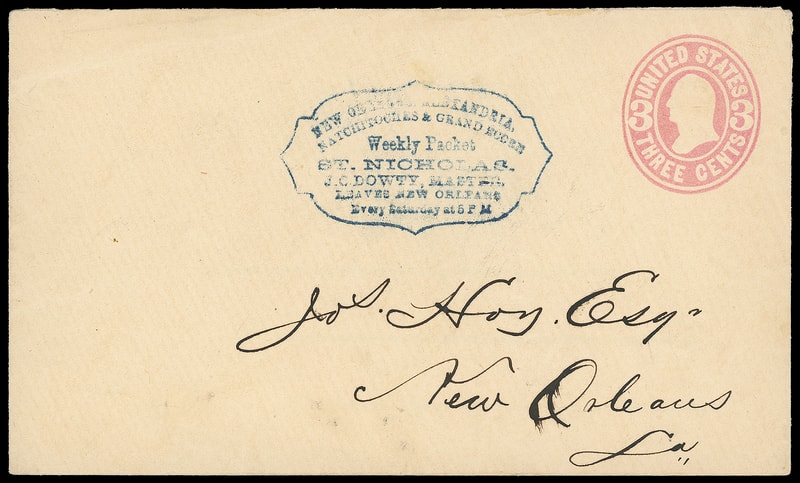 NEW ORLEANS, ALEXANDRIA,
NATCHITOCHES & GRAND ECORE
Weekly Packet
ST. NICHOLAS.
J. C. DOWTY, MASTER.
LEAVES NEW ORLEANS
Every Saturday at 5 P M
UNITED STATES
3 3
THREE CENTS
Jos. Hoy. Esqr
New Orleans
La,,